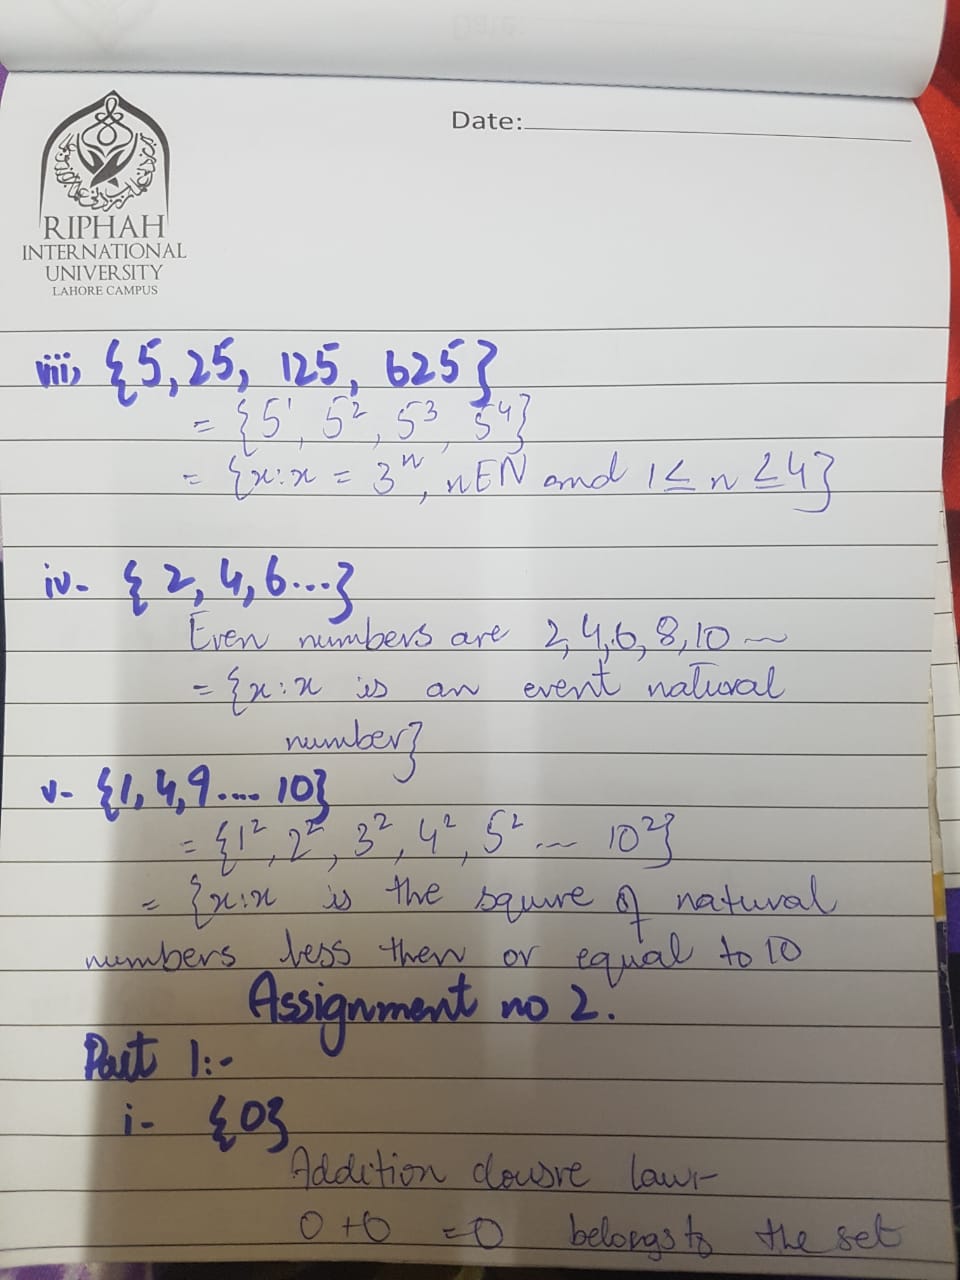 Date:
RIPHAH
INTERNATIONAL
UNIVERSITY
LAHORE CAMPUS
viii, {5, 25, 125, 625}
= {5¹, 5², 5³, 5⁴}
= {x:x = 3ⁿ, nEN and 1 ≤ n ≤ 4}
iv- { 2, 4, 6...}
Even numbers are 2,4,6,8,10 ~
= {x:x is an event natural
number}
v- {1, 4, 9.... 10}
= {1², 2², 3², 4², 5² ... 10²}
= {x:x is the squire of natural
numbers less then or equal to 10
Assignment no 2.
Part 1:-
i- {0}
Addition clousre law:-
0+0 = 0 belongs to the set